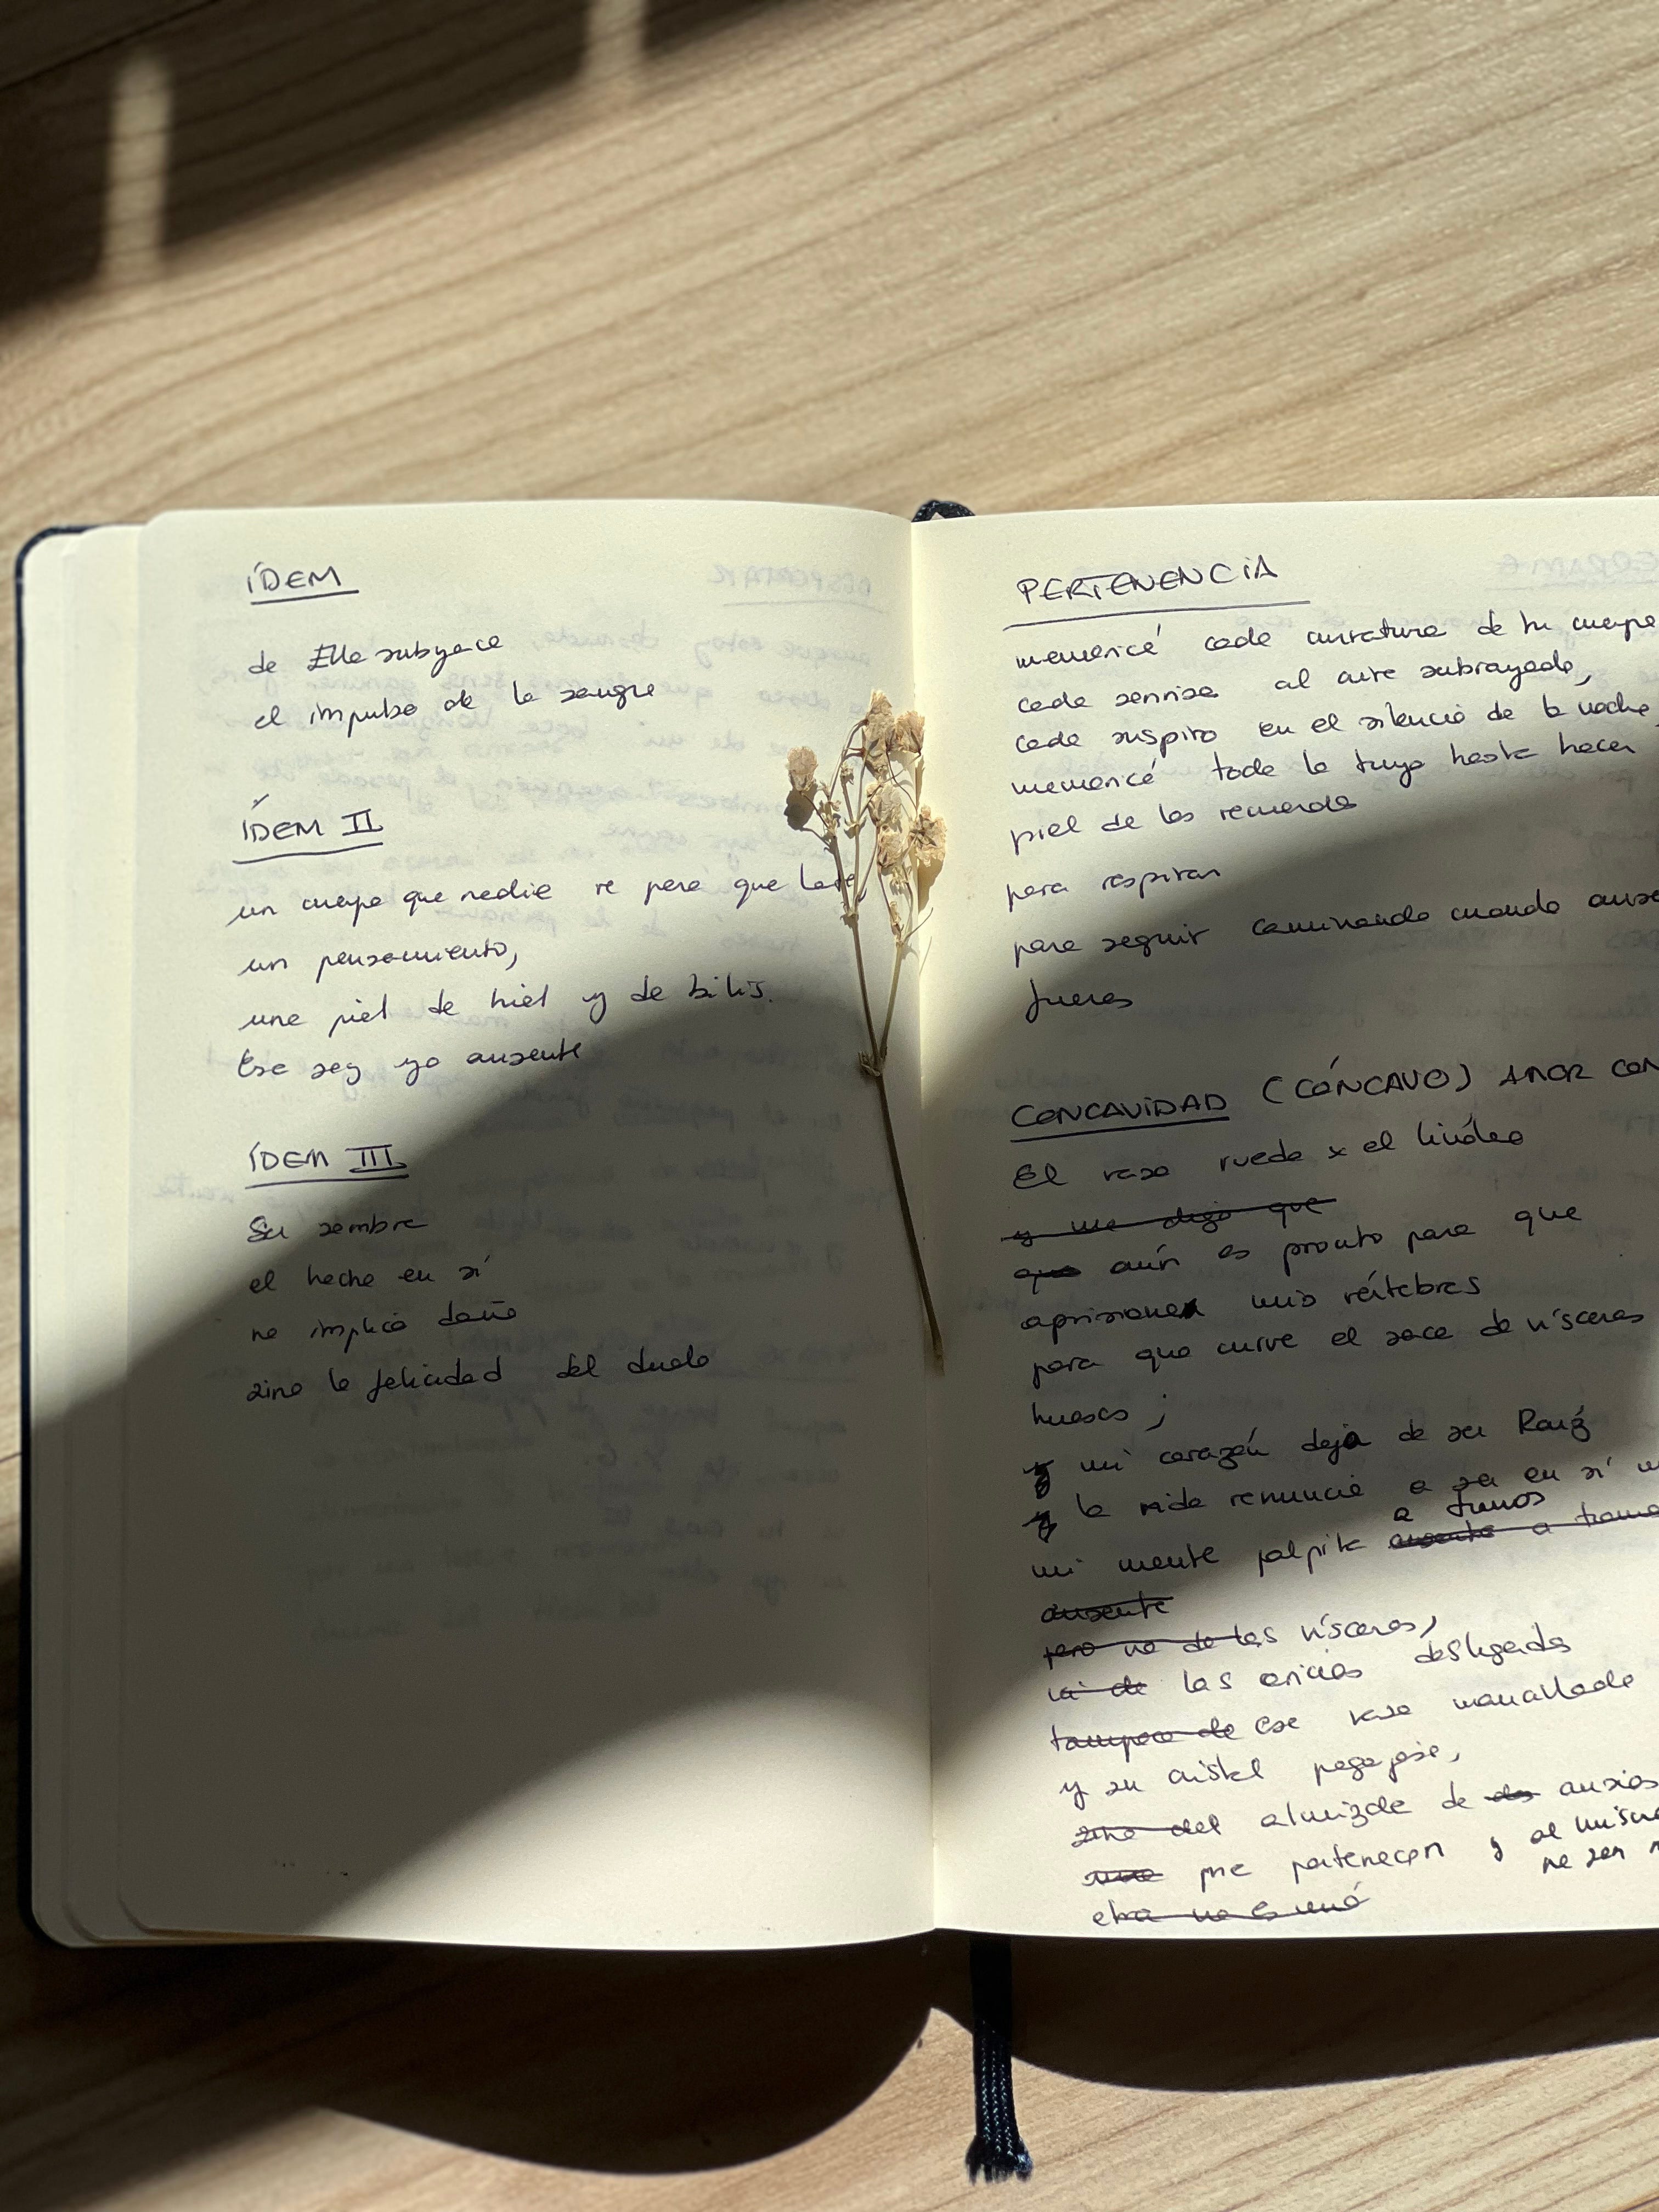 ÍDEM
de Ella subyace
el impulso de la sangre
ÍDEM II
un cuerpo que nadie ve pero que late,
un pensamiento,
una piel de hiel y de bilis.
Ese soy yo ausente
ÍDEM III
Su sombra
el hecho en sí
no implica daño
sino la felicidad del duelo
PERTENENCIA
memoricé cada curvatura de tu cuerpo
cada sonrisa al aire subrayada,
cada suspiro en el silencio de la noche,
memoricé todo lo tuyo hasta hacer
piel de los recuerdos
para respirar
para seguir caminando cuando
fueras
CONCAVIDAD (CÓNCAVO) AMOR CON
El vaso rueda x el linóleo
y me dijo que
que aún es pronto para que
aprisionen mis vértebras
para que curve el saco de vísceras
huesos;
y mi corazón deja de ser Raíz
y la vida renuncia a ser en sí
a tramos
mi mente palpita ausente a tramos
ausente
pero no de las vísceras,
ni de las caricias desligadas
tampoco de Ese vaso
y su cristal
sino del almizcle de ansias
me pertenecen y al
no son